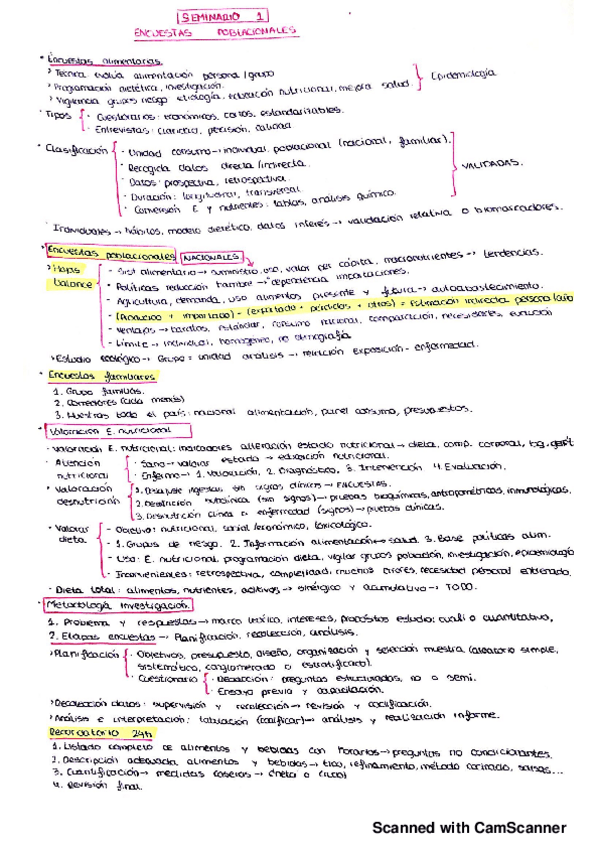 SEMINARIO 1
ENCUESTAS POBLACIONALES
* Encuestas alimentarias
> Técnica evalúa alimentación persona/grupo
> Programación dietética, investigación.
> Vigilancia grupos riesgo etiología, educación nutricional, mejora salud. } Epidemiología
* Tipos - Cuestionarios: económicos, cortos, estandarizables.
- Entrevistas: claridad, precisión, calidad
* Clasificación - Unidad consumo → individual, poblacional (nacional, familiar).
- Recogida datos directa/indirecta.
- Datos: prospectiva, retrospectiva.
- Duración: longitudinal, transversal
- Conversión E y nutrientes: tablas, análisis químico.
VALIDADAS.
* Individuales → hábitos, modelo dietético, datos interés → validación relativa o biomarcadores.
* Encuestas poblacionales NACIONALES
> Hojas balance - Sist alimentario → suministro, uso, valor per cápita, macronutrientes → tendencias.
- Políticas reducción hambre → dependencia importaciones.
- Agricultura, demanda, uso alimentos presente y futura → autoabastecimiento.
- (Producido + importado) - (exportado + pérdidas + otros) = Estimación indirecta persona/año
- Ventajas → baratos, estándar, consumo nacional, comparación, necesidades, evolución
- Límite → individual, homogéneo, no demografía
> Estudio ecológico → Grupo = unidad análisis → relación exposición - enfermedad.
* Encuestas familiares
1. Grupo familias.
2. Comedores (cada menos)
3. Muestras todo el país: nacional alimentación, panel consumo, presupuestos.
* Valoración E. nutricional
- Valoración E. nutricional: indicadores alteración estado nutricional → dieta, comp. corporal,
* Atención nutricional - Sano → valorar estado → educación nutricional.
- Enfermo → 1. Valoración, 2. Diagnóstico, 3. Intervención 4. Evaluación.
* Valoración desnutrición 1. Desajuste ingestas sin signos clínicos → ENCUESTAS.
2. Desnutrición (sin signos) → pruebas bioquímicas, antropométricas, inmunológicas,
3. Desnutrición clínica o enfermedad (signos) → pruebas clínicas.
* Valorar dieta - Objetivo: nutricional, social/económico, toxicológico.
- 1. Grupos de riesgo. 2. Información alimentación → salud. 3. Base políticas alim.
- Uso: E. nutricional, programación dieta, vigilar grupos población, investigación, epidemiología
- Inconvenientes: retrospectiva, complejidad, muchos errores, necesidad personal entrenado.
- Dieta total: alimentos, nutrientes, aditivos → sinérgico y acumulativo → TODO.
* Metodología investigación.
1. Problema y respuestas → marco teórico, intereses, propósitos estudio: cuali o cuantitativo,
2. Etapas encuestas → Planificación, recolección, análisis.
> Planificación - Objetivos, presupuesto, diseño, organización y selección muestra (aleatorio simple,
sistemático, conglomerado o estratificado).
- Cuestionario - Redacción: preguntas estructuradas, no o semi.
- Ensayo previo y capacitación.
> Recolección datos: supervisión y recolección → revisión y codificación.
> Análisis e interpretación: tabulación (codificar) → análisis y realización informe.
Recordatorio 24h
1. Listado completo de alimentos y bebidas con horarios → preguntas no condicionantes.
2. Descripción adecuada alimentos y bebidas → tipo, refinamiento, método cocinado, salsas...
3. Cuantificación → medidas caseras →
4. Revisión final.
Scanned with CamScanner